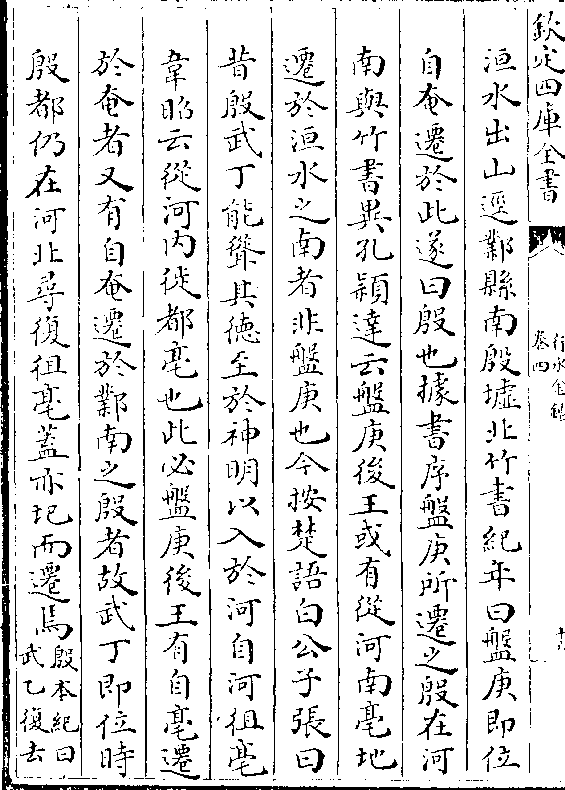 欽定四庫全書
行水金鑑
卷四
洹水出山逕鄴縣南殷墟北竹書紀年曰盤庚即位
自奄遷於此遂曰殷也據書序盤庚所遷之殷在河
南與竹書異孔穎達云盤庚後王或有從河南亳地
遷於洹水之南者非盤庚也今按楚語白公子張曰
昔殷武丁能聳其德至於神明以入於河自河徂亳
韋昭云從河内徙都亳也此必盤庚後王有自亳遷
於奄者又有自奄遷於鄴南之殷者故武丁即位時
殷都仍在河北尋復徂亳蓋亦圯而遷焉
殷本紀曰
武乙復去